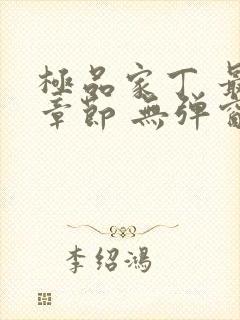 極品家丁 最
章節 無弹窗
李绍鴻